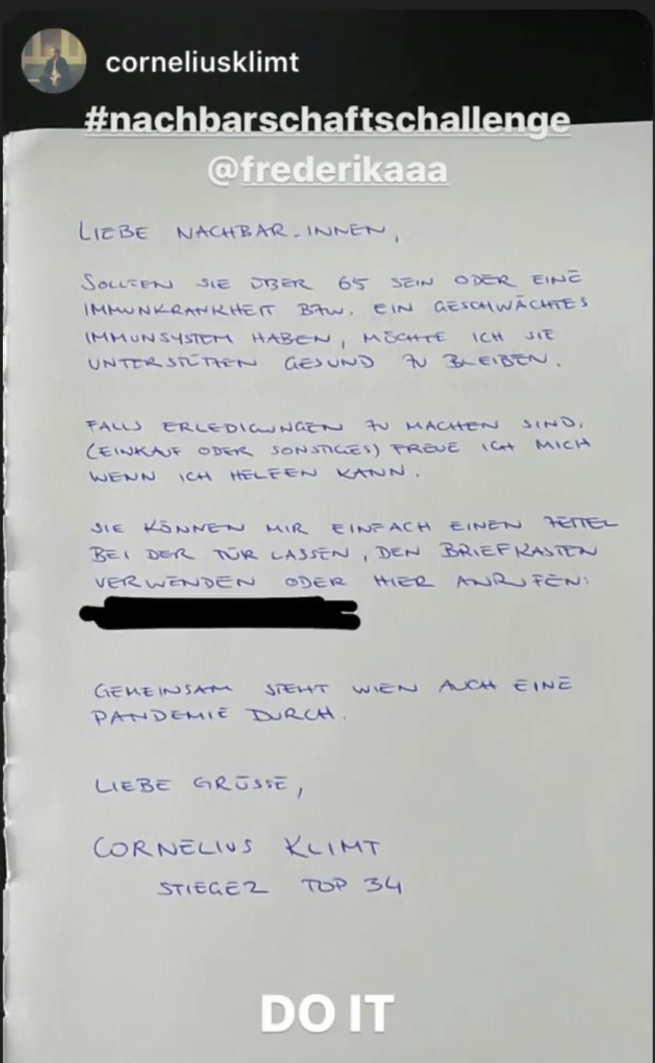 corneliusklimt
#nachbarschaftschallenge
@frederikaaa
LIEBE NACHBAR_INNEN,
SOLLTEN SIE ÜBER 65 SEIN ODER EINE
IMMUNKRANKHEIT BZW. EIN GESCHWÄCHTES
IMMUNSYSTEM HABEN, MÖCHTE ICH SIE
UNTERSTÜTZEN GESUND ZU BLEIBEN.
FALLS ERLEDIGUNGEN ZU MACHEN SIND,
(EINKAUF ODER SONSTIGES) FREUE ICH MICH
WENN ICH HELFEN KANN.
SIE KÖNNEN MIR EINFACH EINEN ZETTEL
BEI DER TÜR LASSEN, DEN BRIEFKASTEN
VERWENDEN ODER HIER ANRUFEN:
GEMEINSAM STEHT WIEN AUCH EINE
PANDEMIE DURCH.
LIEBE GRÜSSE,
CORNELIUS KLIMT
STIEGE2 TOP 34
DO IT